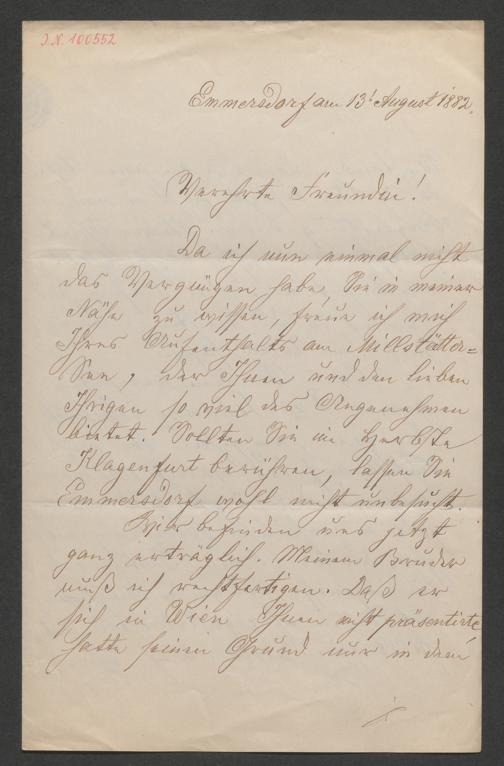 J.N. 100552
Emmersdorf am 13t August 1882.
Verehrte Freundin!
Da ich nun einmal nicht
das Vergnügen habe, Sie in meiner
Nähe zu wissen, freue ich mich
Ihres Aufenthalts am Millstätter=
See, der Ihnen und den lieben
Ihrigen so viel des Angenehmen
bietet. Sollten Sie im Herbste
Klagenfurt berühren, lassen Sie
Emmersdorf wohl nicht unbesucht.
Wir befinden uns jetzt
ganz erträglich. Meinem Bruder
muß ich rechtfertigen. Daß er
sich in Wien Ihnen nicht präsentirte
hatte seinen Grund nur in dem